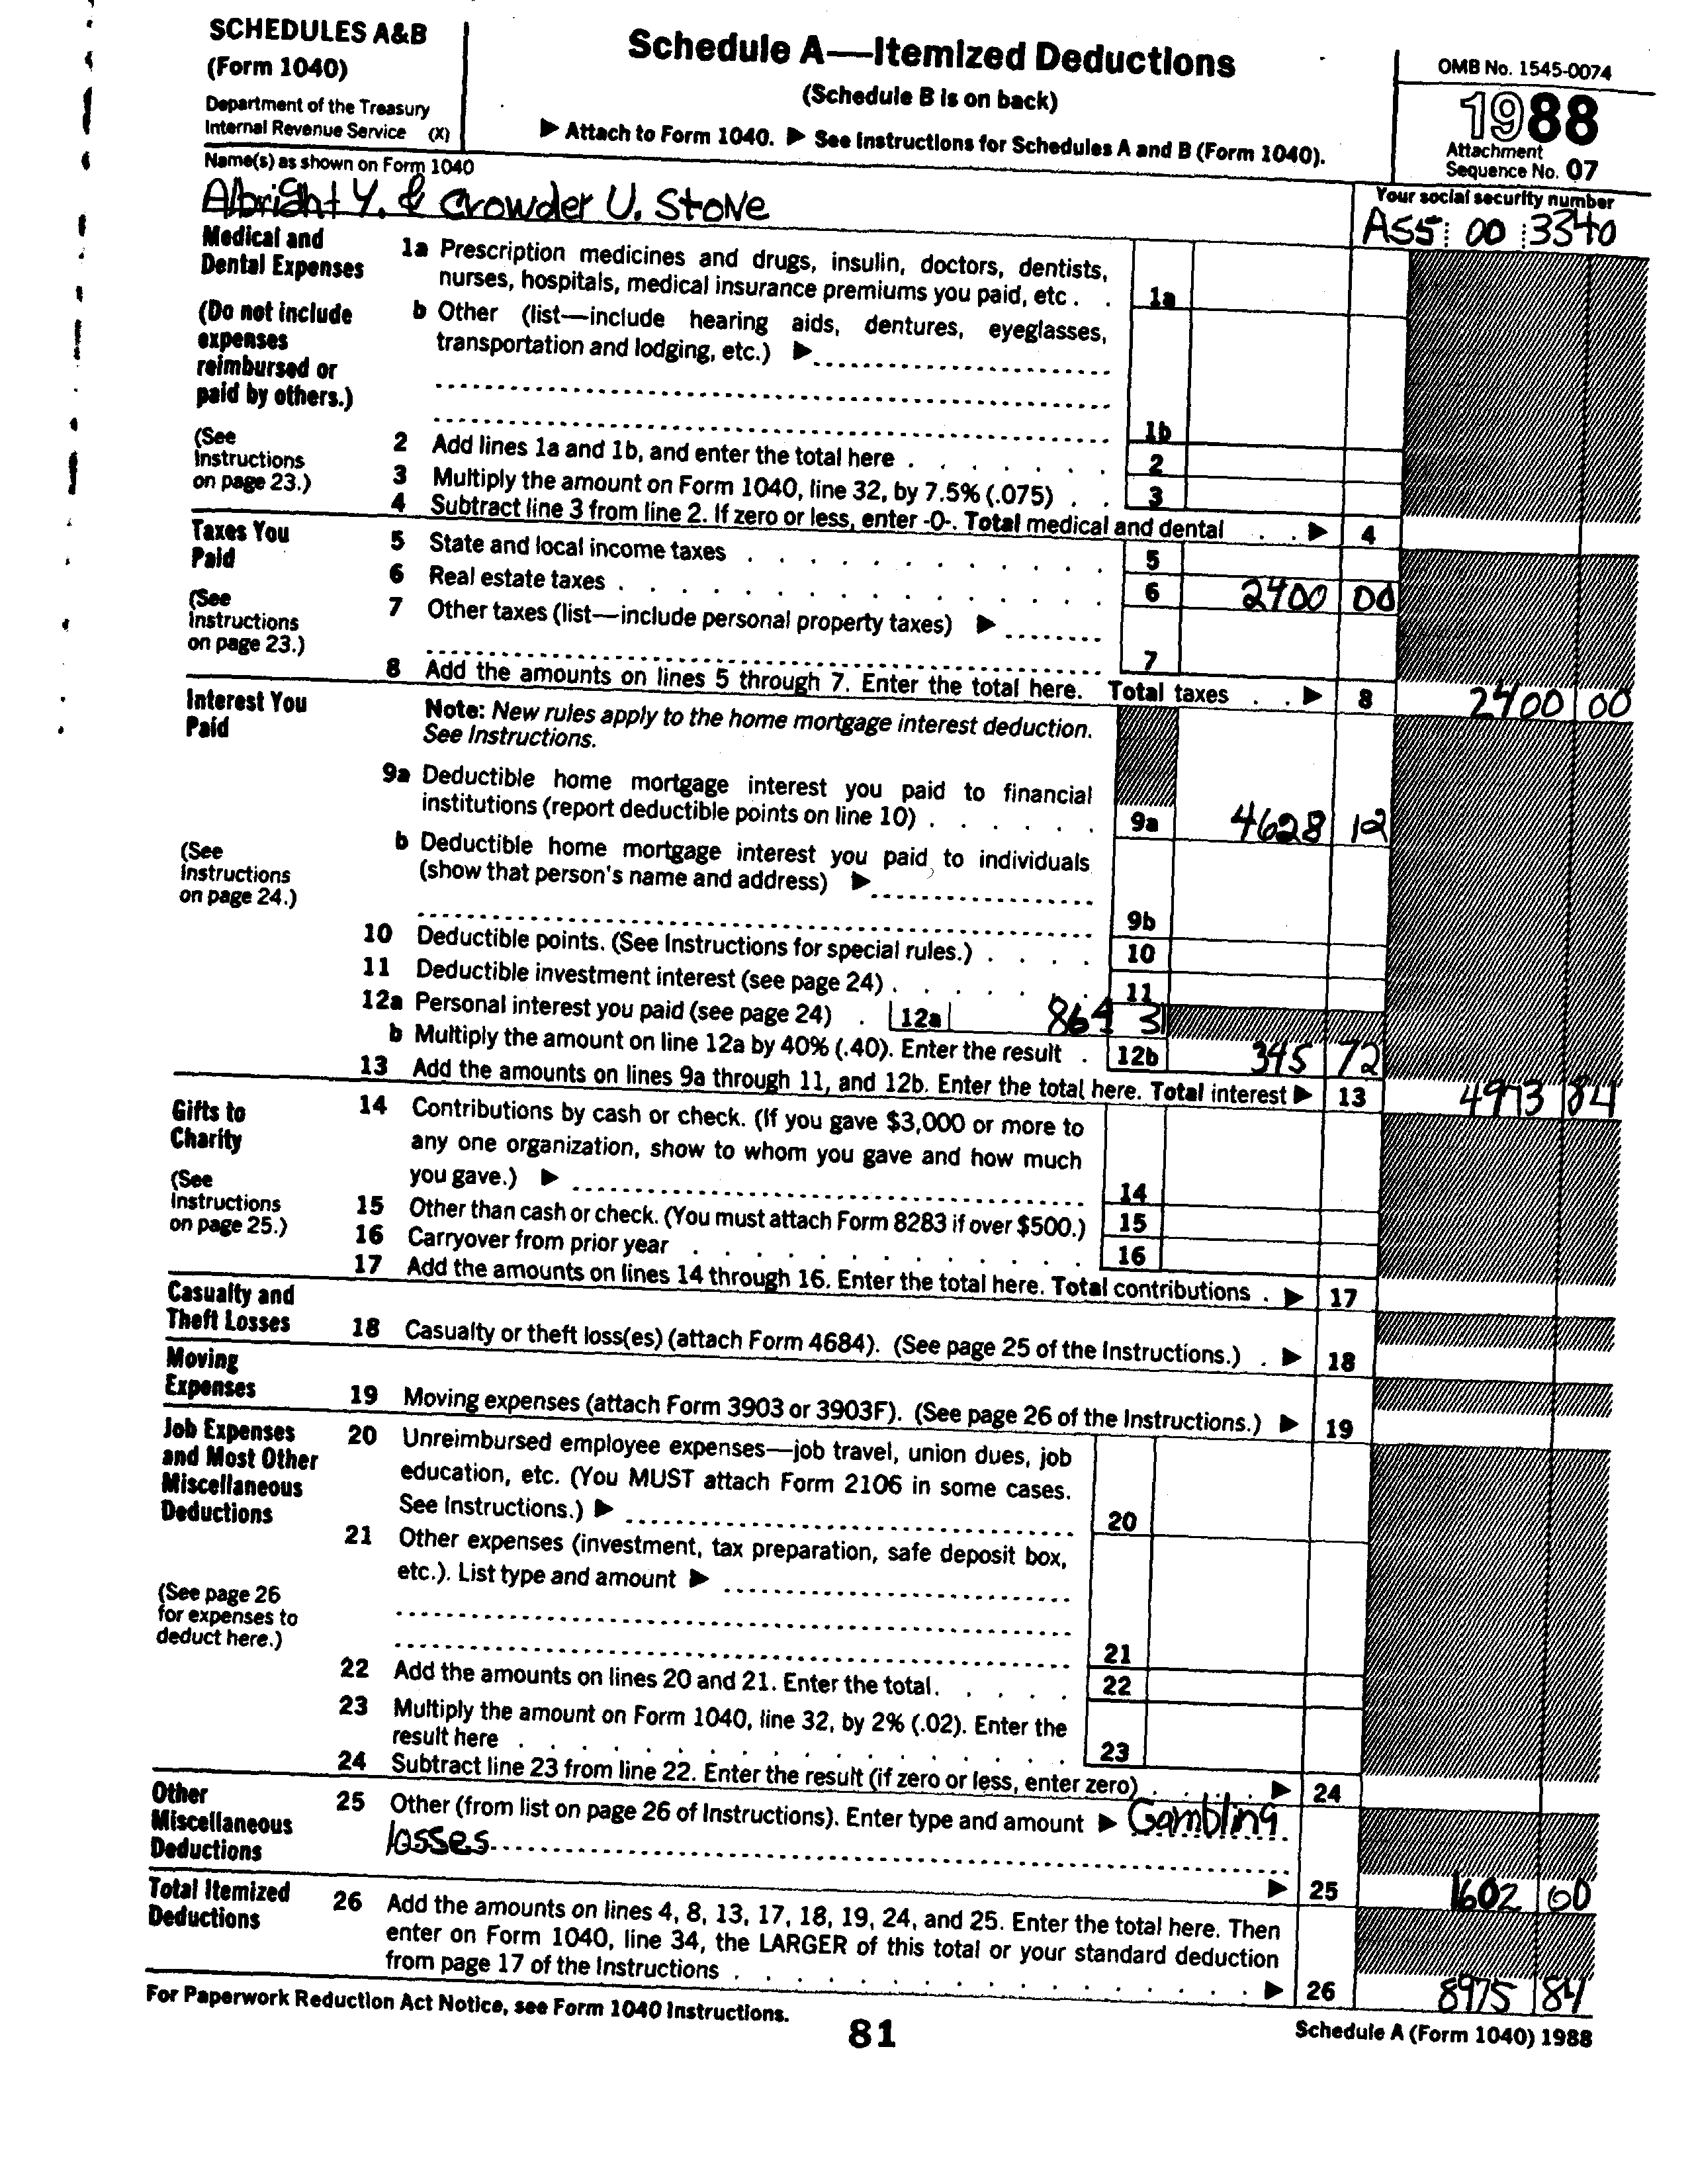 SCHEDULES A&B
(Form 1040)
Department of the Treasury
Internal Revenue Service (X)
Schedule A—Itemized Deductions
(Schedule B is on back)
▶ Attach to Form 1040. ▶ See Instructions for Schedules A and B (Form 1040).
OMB No. 1545-0074
1988
Attachment
Sequence No. 07
Name(s) as shown on Form 1040
Albright Y. & Crowder U. Stone
Your social security number
A55 00 3340
Medical and
Dental Expenses
(Do not include
expenses
reimbursed or
paid by others.)
(See
Instructions
on page 23.)
1a Prescription medicines and drugs, insulin, doctors, dentists,
nurses, hospitals, medical insurance premiums you paid, etc . . 1a
b Other (list—include hearing aids, dentures, eyeglasses,
transportation and lodging, etc.) ▶
1b
2 Add lines 1a and 1b, and enter the total here . . . . . . . 2
3 Multiply the amount on Form 1040, line 32, by 7.5% (.075) . . 3
4 Subtract line 3 from line 2. If zero or less, enter -0-. Total medical and dental . . ▶ 4
Taxes You
Paid
(See
Instructions
on page 23.)
5 State and local income taxes . . . . . . . . . . . . 5
6 Real estate taxes . . . . . . . . . . . . . . . . 6 2400 00
7 Other taxes (list—include personal property taxes) ▶
7
8 Add the amounts on lines 5 through 7. Enter the total here. Total taxes . . ▶ 8 2400 00
Interest You
Paid
(See
Instructions
on page 24.)
Note: New rules apply to the home mortgage interest deduction.
See Instructions.
9a Deductible home mortgage interest you paid to financial
institutions (report deductible points on line 10) . . . . . . 9a 4628 12
b Deductible home mortgage interest you paid to individuals
(show that person's name and address) ▶
9b
10 Deductible points. (See Instructions for special rules.) . . . . 10
11 Deductible investment interest (see page 24) . . . . . . . 11
12a Personal interest you paid (see page 24) . 12a 864 31
b Multiply the amount on line 12a by 40% (.40). Enter the result . 12b 345 72
13 Add the amounts on lines 9a through 11, and 12b. Enter the total here. Total interest ▶ 13 4973 84
Gifts to
Charity
(See
Instructions
on page 25.)
14 Contributions by cash or check. (If you gave $3,000 or more to
any one organization, show to whom you gave and how much
you gave.) ▶ 14
15 Other than cash or check. (You must attach Form 8283 if over $500.) 15
16 Carryover from prior year . . . . . . . . . . . . . 16
17 Add the amounts on lines 14 through 16. Enter the total here. Total contributions . ▶ 17
Casualty and
Theft Losses
18 Casualty or theft loss(es) (attach Form 4684). (See page 25 of the Instructions.) . ▶ 18
Moving
Expenses
19 Moving expenses (attach Form 3903 or 3903F). (See page 26 of the Instructions.) ▶ 19
Job Expenses
and Most Other
Miscellaneous
Deductions
(See page 26
for expenses to
deduct here.)
20 Unreimbursed employee expenses—job travel, union dues, job
education, etc. (You MUST attach Form 2106 in some cases.
See Instructions.) ▶ 20
21 Other expenses (investment, tax preparation, safe deposit box,
etc.). List type and amount ▶
21
22 Add the amounts on lines 20 and 21. Enter the total. . . . . 22
23 Multiply the amount on Form 1040, line 32, by 2% (.02). Enter the
result here . . . . . . . . . . . . . . . . . 23
24 Subtract line 23 from line 22. Enter the result (if zero or less, enter zero) . . . . . ▶ 24
Other
Miscellaneous
Deductions
25 Other (from list on page 26 of Instructions). Enter type and amount ▶ Gambling
losses
▶ 25 1602 00
Total Itemized
Deductions
26 Add the amounts on lines 4, 8, 13, 17, 18, 19, 24, and 25. Enter the total here. Then
enter on Form 1040, line 34, the LARGER of this total or your standard deduction
from page 17 of the Instructions . . . . . . . . . . . . . . . . . . ▶ 26 8975 84
For Paperwork Reduction Act Notice, see Form 1040 Instructions.
81
Schedule A (Form 1040) 1988